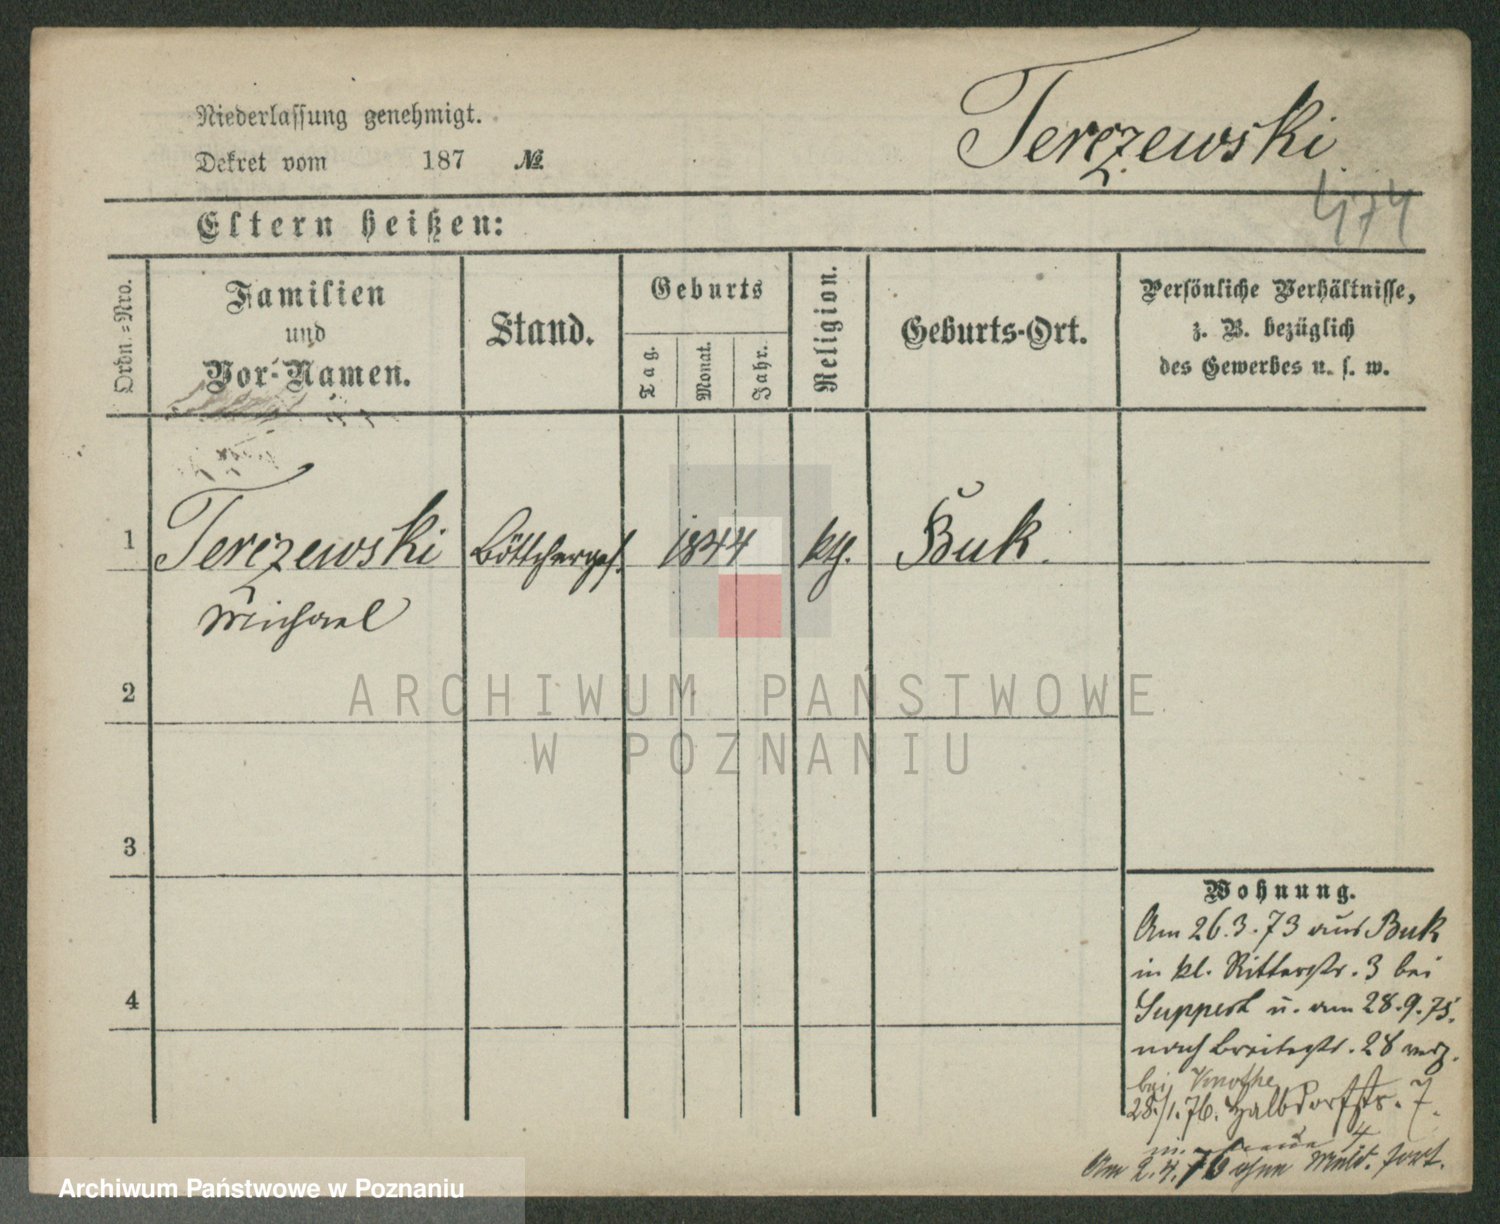 Niederlassung genehmigt.
Dekret vom 187 №
Terczewski
474
Eltern heißen:
Ordn.=Nro.
Familien
und
Vor-Namen.
Stand.
Geburts
Tag.
Monat.
Jahr.
Religion.
Geburts-Ort.
Persönliche Verhältnisse,
z. B. bezüglich
des Gewerbes u. s. w.
1 Terczewski Böttcherges. 1844 kth. Buk.
Michael
2
3
4
Wohnung.
Am 26.3.73 aus Buk
in kl. Ritterstr. 3 bei
Suppert u. am 28.9.75.
nach Breitestr. 28 verz.
bei Knothe
28./1.76. Halbdorfstr. 7.
Am 2.4.76 ohne Meld. fort.
ARCHIWUM PAŃSTWOWE
W POZNANIU
Archiwum Państwowe w Poznaniu